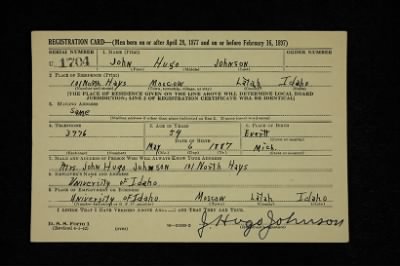 REGISTRATION CARD—(Men born on or after April 28, 1877 and on or before February 16, 1897)
SERIAL NUMBER 1. NAME (Print) ORDER NUMBER
U 1704 John Hugo Johnson
(First) (Middle) (Last)
2. PLACE OF RESIDENCE (Print)
101 North Hays Moscow Latah Idaho
(Number and street) (Town, township, village, or city) (County) (State)
[THE PLACE OF RESIDENCE GIVEN ON THE LINE ABOVE WILL DETERMINE LOCAL BOARD
JURISDICTION; LINE 2 OF REGISTRATION CERTIFICATE WILL BE IDENTICAL]
3. MAILING ADDRESS
Same
[Mailing address if other than place indicated on line 2. If same insert word same]
4. TELEPHONE 5. AGE IN YEARS 6. PLACE OF BIRTH
3776 54 Everitt
DATE OF BIRTH (Town or county)
May 6 1887 Mich.
(Exchange) (Number) (Mo.) (Day) (Yr.) (State or country)
7. NAME AND ADDRESS OF PERSON WHO WILL ALWAYS KNOW YOUR ADDRESS
Mrs. John Hugo Johnson 101 North Hays
8. EMPLOYER'S NAME AND ADDRESS
University of Idaho
9. PLACE OF EMPLOYMENT OR BUSINESS
University of Idaho Moscow Latah Idaho
(Number and street or R. F. D. number) (Town) (County) (State)
I AFFIRM THAT I HAVE VERIFIED ABOVE ANSWERS AND THAT THEY ARE TRUE.
D. S. S. Form 1
(Revised 4-1-42) (over) J Hugo Johnson
(Registrant's signature)